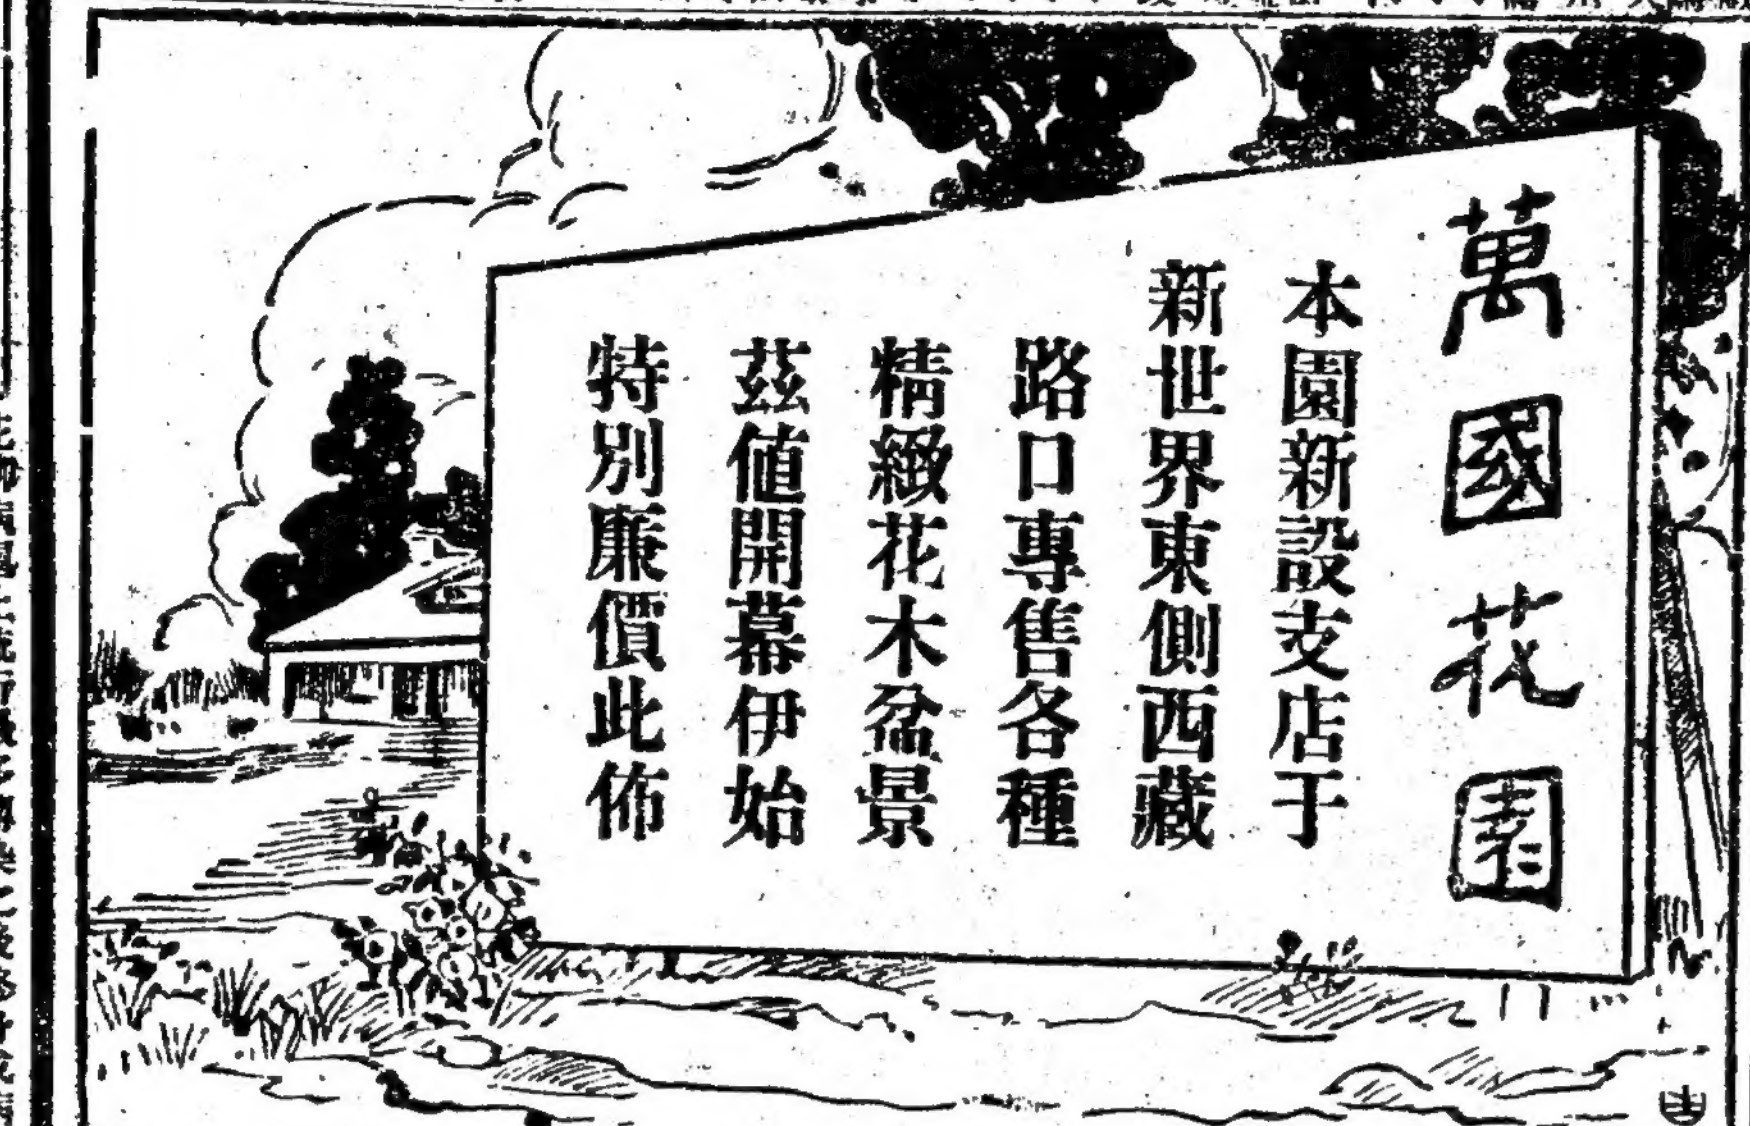 萬國花園
本園新設支店于
新世界東側西藏
路口專售各種
精緻花木盆景
茲值開幕伊始
特別廉價此佈